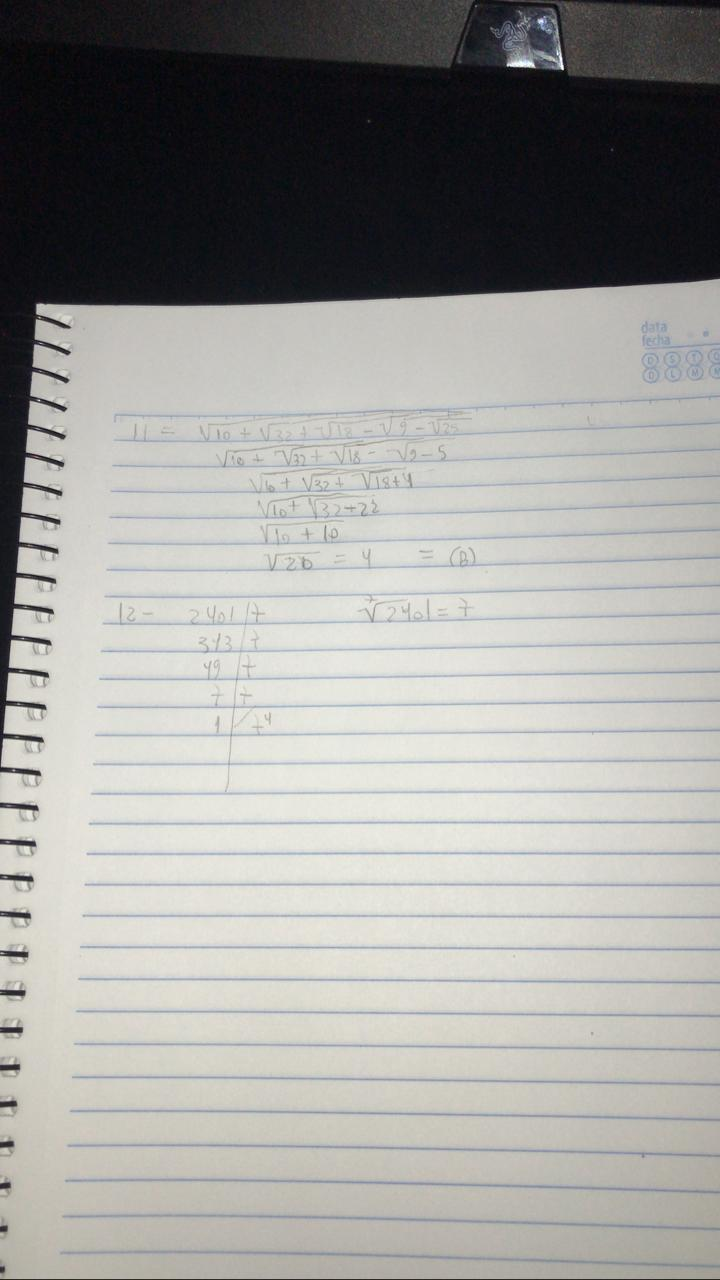 data
fecha
D S T Q
D L M M
11 = √10 + √32 + √18 - √9 - √25
√10 + √32 + √18 - √9 - 5
√10 + √32 + √18+4
√10 + √32+22
√10 + 10
√20 = 4 = (B)
12 - 2401 | 7 ⁷√2401 = 7
343 | 7
49 | 7
7 | 7
1 | 7⁴